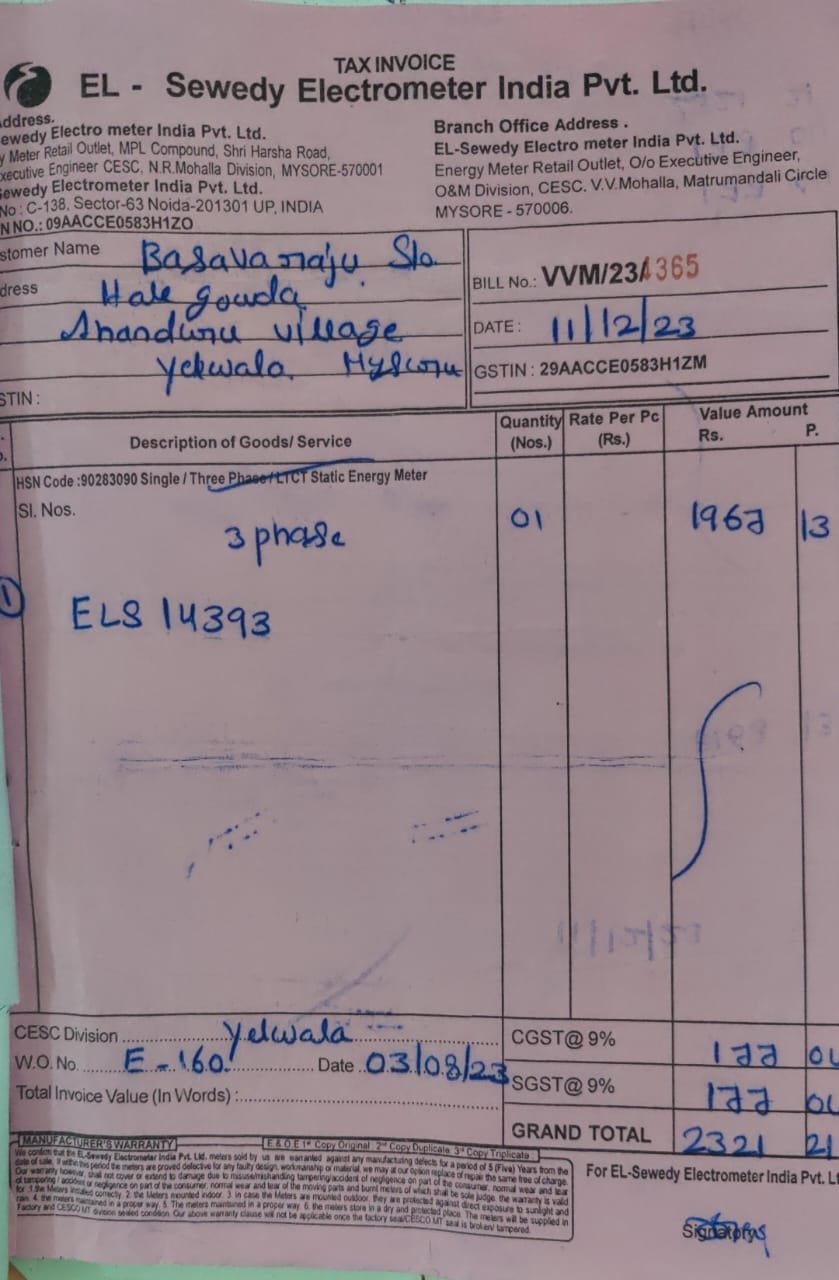 TAX INVOICE
EL - Sewedy Electrometer India Pvt. Ltd.
ddress.
ewedy Electro meter India Pvt. Ltd.
y Meter Retail Outlet, MPL Compound, Shri Harsha Road,
xecutive Engineer CESC, N.R.Mohalla Division, MYSORE-570001
Sewedy Electrometer India Pvt. Ltd.
No : C-138, Sector-63 Noida-201301 UP, INDIA
N NO.: 09AACCE0583H1ZO
Branch Office Address .
EL-Sewedy Electro meter India Pvt. Ltd.
Energy Meter Retail Outlet, O/o Executive Engineer,
O&M Division, CESC. V.V.Mohalla, Matrumandali Circle
MYSORE - 570006.
stomer Name Basavaraju S/o
dress Hale gouda
Ananduru village
Yelwala Mysoru
STIN :
BILL No.: VVM/23/4365
DATE : 11/12/23
GSTIN : 29AACCE0583H1ZM
Description of Goods/ Service Quantity (Nos.) Rate Per Pc (Rs.) Value Amount Rs. P.
HSN Code :90283090 Single / Three Phase / LTCT Static Energy Meter
Sl. Nos.
3 phase 01 1967 13
1 ELS 14393
CESC Division Yelwala
W.O. No. E-160 Date 03/08/23
Total Invoice Value (In Words) :
CGST@ 9% 177 04
SGST@ 9% 177 04
GRAND TOTAL 2321 21
MANUFACTURER'S WARRANTY
E & O E 1st Copy Original 2nd Copy Duplicate 3rd Copy Triplicate
We confirm that the EL-Sewedy Electrometer India Pvt. Ltd. meters sold by us are warranted against any manufacturing defects for a period of 5 (Five) Years from the
date of sale. If within this period the meters are proved defective for any faulty design, workmanship or material, we may at our option replace or repair the same free of charge.
Our warranty however, shall not cover or extend to damage due to misuse/mishandling tampering/accident of negligence on part of the consumer, normal wear and tear
for : 1.the Meters installed correctly. 2. the Meters mounted indoor. 3. in case the Meters are mounted outdoor, they are protected against direct exposure to sunlight and
rain. 4. the meters maintained in a proper way. 5. The meters maintained in a proper way. 6. the meters store in a dry and protected place. The meters will be supplied in
Factory and CESCO MT division sealed condition. Our above warranty clause will not be applicable once the factory seal/CESCO MT seal is broken/ tampered.
For EL-Sewedy Electrometer India Pvt. Lt
Signatory